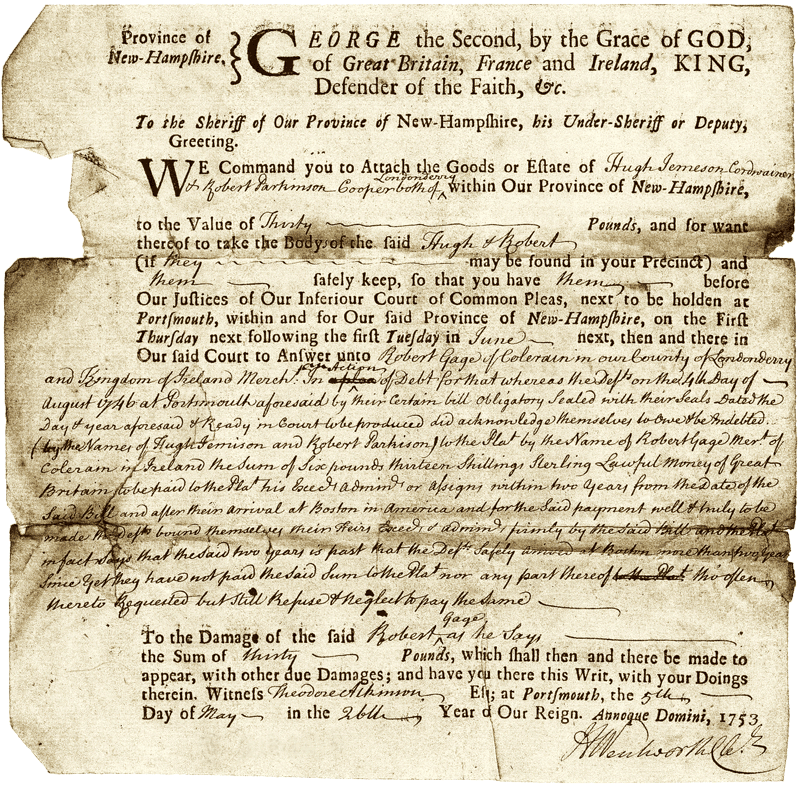 Province of New-Hampshire,
GEORGE the Second, by the Grace of GOD,
of Great Britain, France and Ireland, KING,
Defender of the Faith, &c.
To the Sheriff of Our Province of New-Hampshire, his Under-Sheriff or Deputy,
Greeting.
WE Command you to Attach the Goods or Estate of Hugh Jemeson Cordwainer
& Robert Parkinson Cooper both of Londonderry within Our Province of New-Hampshire,
to the Value of Thirty Pounds, and for want
thereof to take the Bodys of the said Hugh & Robert
(if they may be found in your Precinct) and
them safely keep, so that you have them before
Our Justices of Our Inferiour Court of Common Pleas, next to be holden at
Portsmouth, within and for Our said Province of New-Hampshire, on the First
Thursday next following the first Tuesday in June next, then and there in
Our said Court to Answer unto Robert Gage of Colerain in our County of Londonderry
and Kingdom of Ireland Merch.t In an Action of Debt for that whereas the Def.ts on the 4th Day of
August 1746 at Portsmouth aforesaid by their Certain bill Obligatory Sealed with their Seals Dated the
Day & year aforesaid & Ready in Court to be produced did acknowledge themselves to Owe & be Indebted
(by the Names of Hugh Jemison and Robert Parkison) to the Pla.t by the Name of Robert Gage Mer.t of
Colerain in Ireland the Sum of Six pounds thirteen Shillings Sterling Lawful Money of Great
Britain to be paid to the Pla.t his Exec.rs Admin.rs or Assigns within two Years from the Date of the
Said Bill and after their arrival at Boston in America and for the Said payment well & truly to be
made the Def.ts bound themselves their Heirs Exec.rs & admin.rs firmly by the Said Bill and the Pla.t
in fact Says that the said two years is past that the Def.ts Safely arrived at Boston more than two years
Since Yet they have not paid the Said Sum to the Pla.t nor any part thereof to the Pla.t tho often
thereto Requested but Still Refuse & Neglect to pay the Same
To the Damage of the said Robert Gage as he Says
the Sum of thirty Pounds, which shall then and there be made to
appear, with other due Damages; and have you there this Writ, with your Doings
therein. Witness Theodore Atkinson Esq; at Portsmouth, the 5th
Day of May in the 26th Year of Our Reign. Annoque Domini, 1753
H Wentworth Cle.r